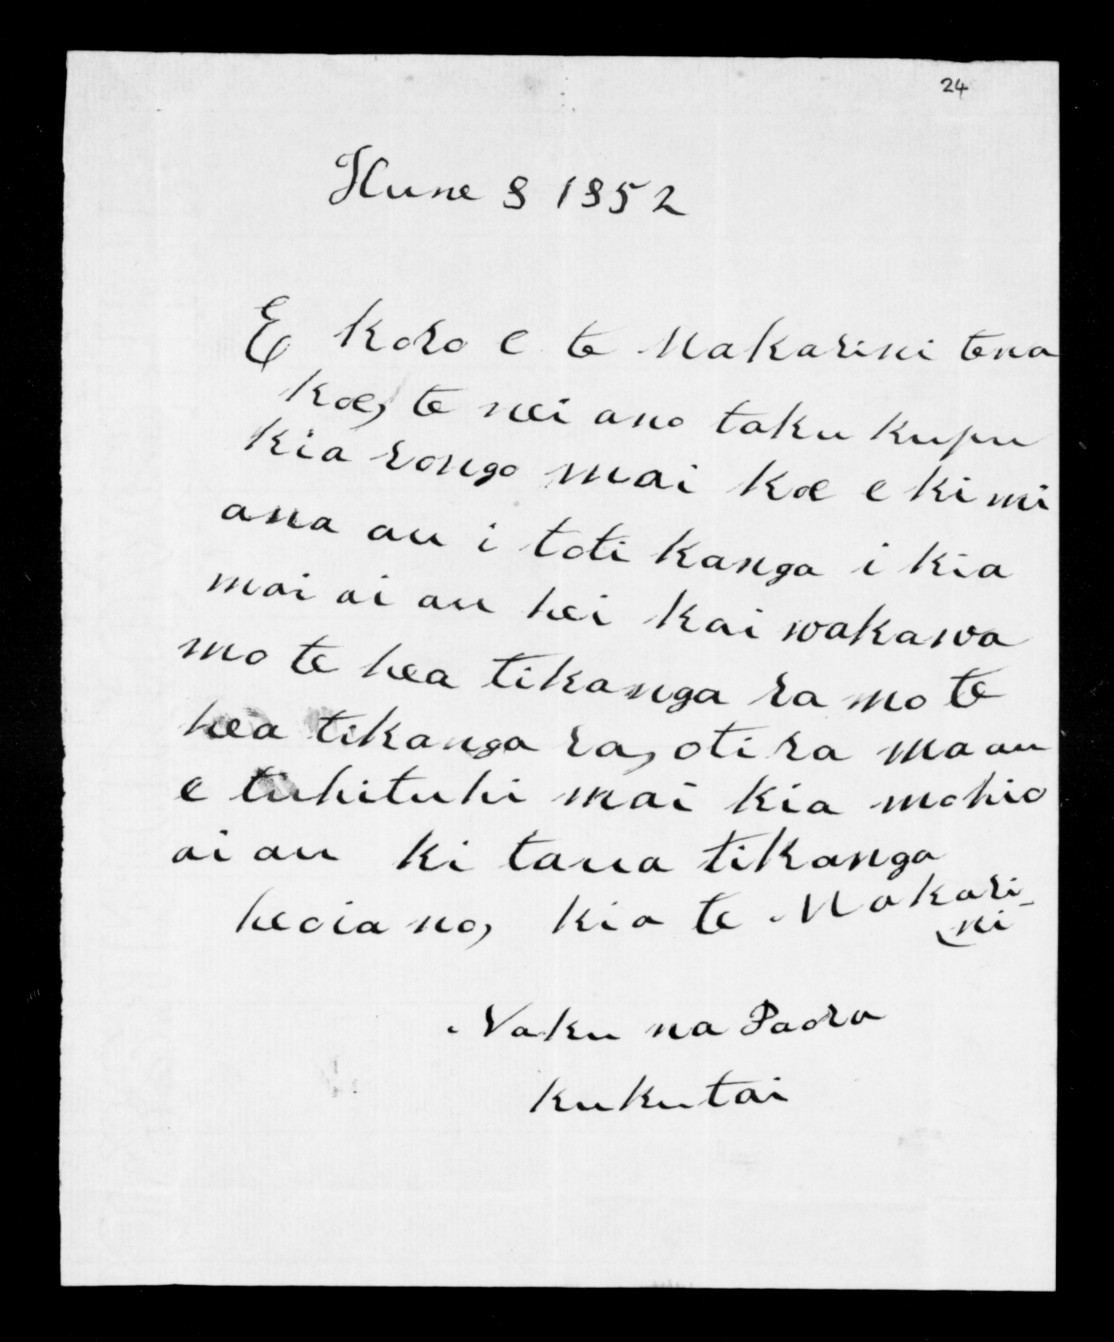 24
Hune 8 1852
E koro e te Makarini tena
koe, te nei ano taku kupu
kia rongo mai koe e ki mi
ana au i toti kanga i kia
mai ai au hei kai wakawa
mo te hea tikanga ra mo te
hea tikanga ra, oti ra ma au
e tuhituhi mai kia mohio
ai au ki taua tikanga
heoia no, kia te Makari-
ni
Naku na Paora
Kukutai